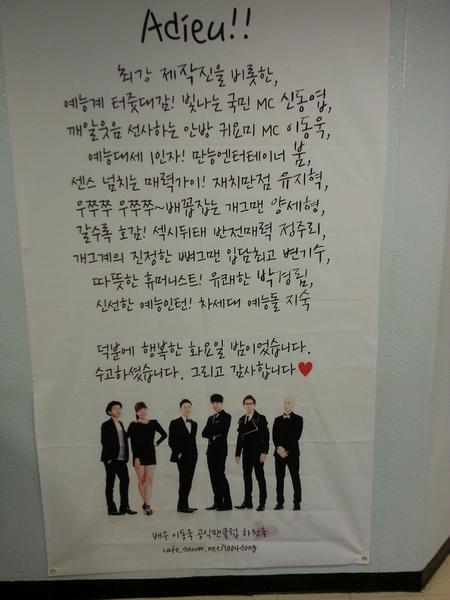 Adieu!!
최강 제작진을 비롯한,
예능계 터줏대감! 빛나는 국민 MC 신동엽,
깨알웃음 선사하는 안방 귀요미 MC 이동욱,
예능대세 1인자! 만능엔터테이너 붐,
센스 넘치는 매력가이! 재치만점 유지혁,
우쭈쭈 우쭈쭈~배꼽잡는 개그맨 양세형,
갈수록 호감! 섹시뒤태 반전매력 정주리,
개그계의 진정한 뼈그맨 입담최고 변기수,
따뜻한 휴머니스트! 유쾌한 박경림,
신선한 예능인턴! 차세대 예능돌 지숙
덕분에 행복한 화요일 밤이었습니다.
수고하셨습니다. 그리고 감사합니다♥
배우 이동욱 공식팬클럽 하천욱
cafe.daum.net/1004dong